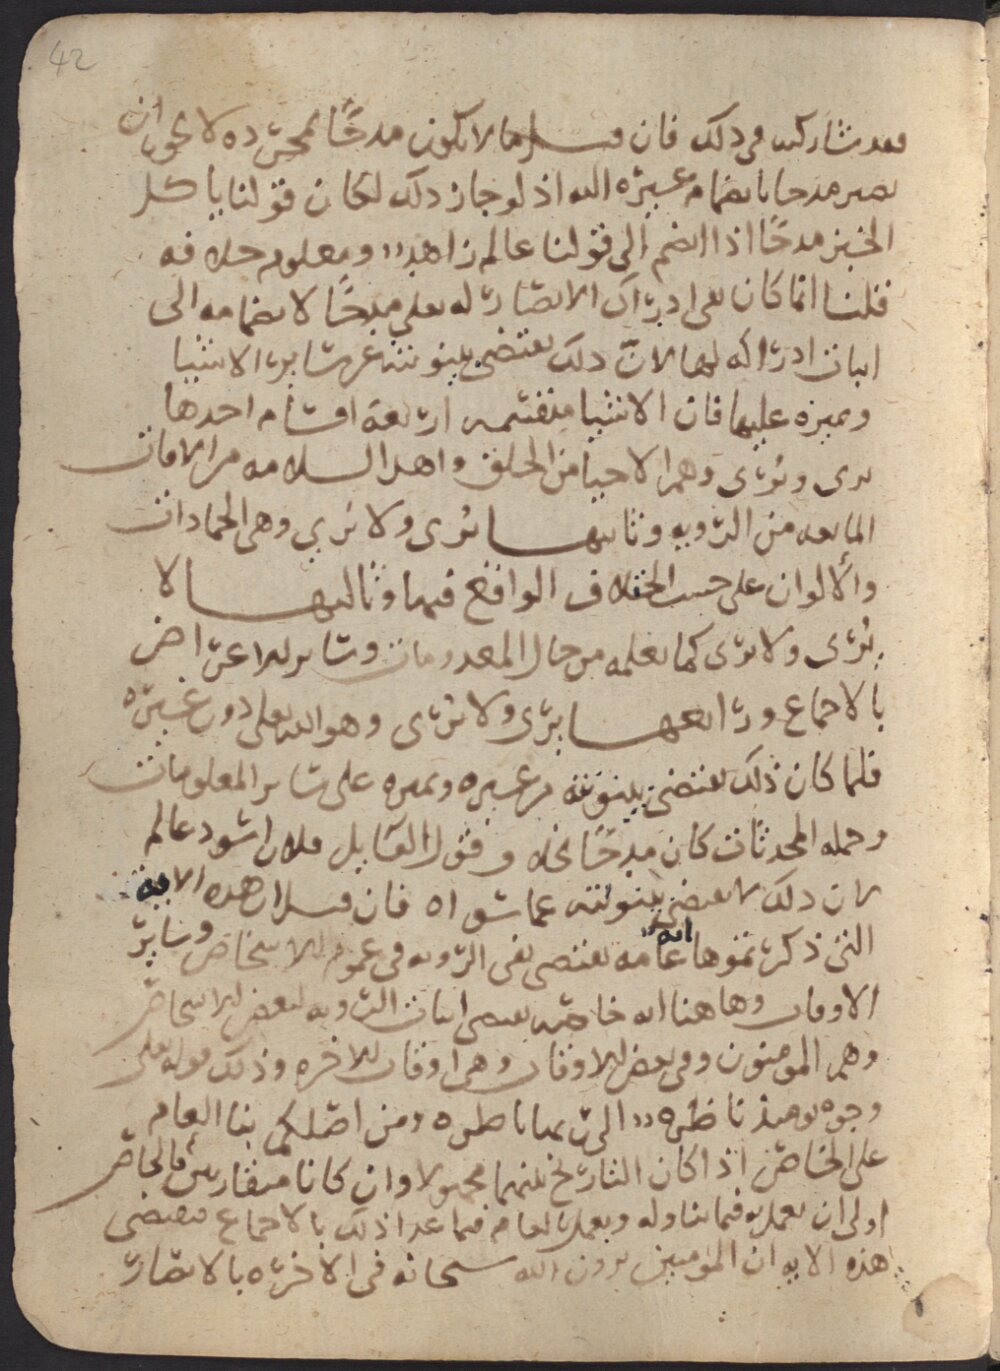 42
فقد شاركته في ذلك فان قيل ما لا يكون مدحًا بمجرده لا يجوز ان
يصير مدحا بانضمام غيره اليه اذ لو جاز ذلك لكان قولنا ياكل
الخبز مدحًا اذا انضم الى قولنا عالم زاهد ومعلوم خلافه
قلنا انما كان نفي ادراك الابصار له تعلى مدحًا لانضمامه الى
اثبات ادراكه لها لانّ ذلك يقتضي بينونته عن سائر الاشيا
وتميزه عليها فان الاشيا منقسمه اربعة اقسام احدها
يرى ويُرى وهم الاحيا من الخلق واهل السلامه من الافات
المانعه من الرويه وثانيها يُرى ولا يَرى وهي الجمادات
والالوان على حسب اختلاف الواقع فيها وثالثها لا
يُرى ولا يرى كما نعلمه من حال المعدومات وسائر الاعراض
بالاجماع ورابعها يرى ولا يُرى وهو الله تعلى دون غيره
فلما كان ذلك يقتضي بينونته من غيره وتميزه على سائر المعلومات
وجمله المحدثات كان مدحًا بخلاف قول القايل فلان اسود عالم
لان ذلك لا يقتضي بينونته عما سواه فان قيل ان هذه الايه
التي ذكرتموها عامه تقتضي نفي الرويه في عموم الاشخاص وسائر
الاوقات وهاهنا ايه خاصه تقتضي اثبات الرويه لبعض الاشخاص
وهم المومنون وفي بعض الاوقات وهي اوقات الاخره وذلك قوله تعلى
وجوه يومئذ ناظره الى ربها ناظره ومن اصلكم بنا العام
على الخاص اذا كان التاريخ بينهما مجهولا وان كانا متقاربين فالخاص
اولى ان يعمل به فيما تناوله ويعمل بالعام فيما عدا ذلك بالاجماع فتقتضي
هذه الايه ان المومنين يرون الله سبحانه في الاخره بالابصار